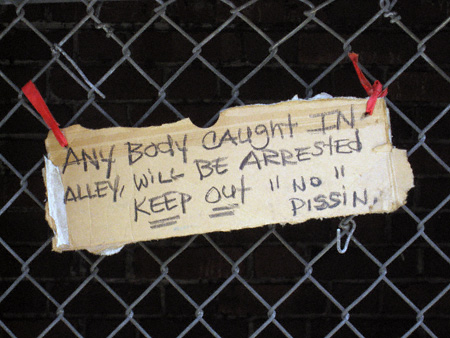 ANY BODY CAUGHT IN
ALLEY, WILL BE ARRESTED
KEEP OUT "NO"
PISSIN.